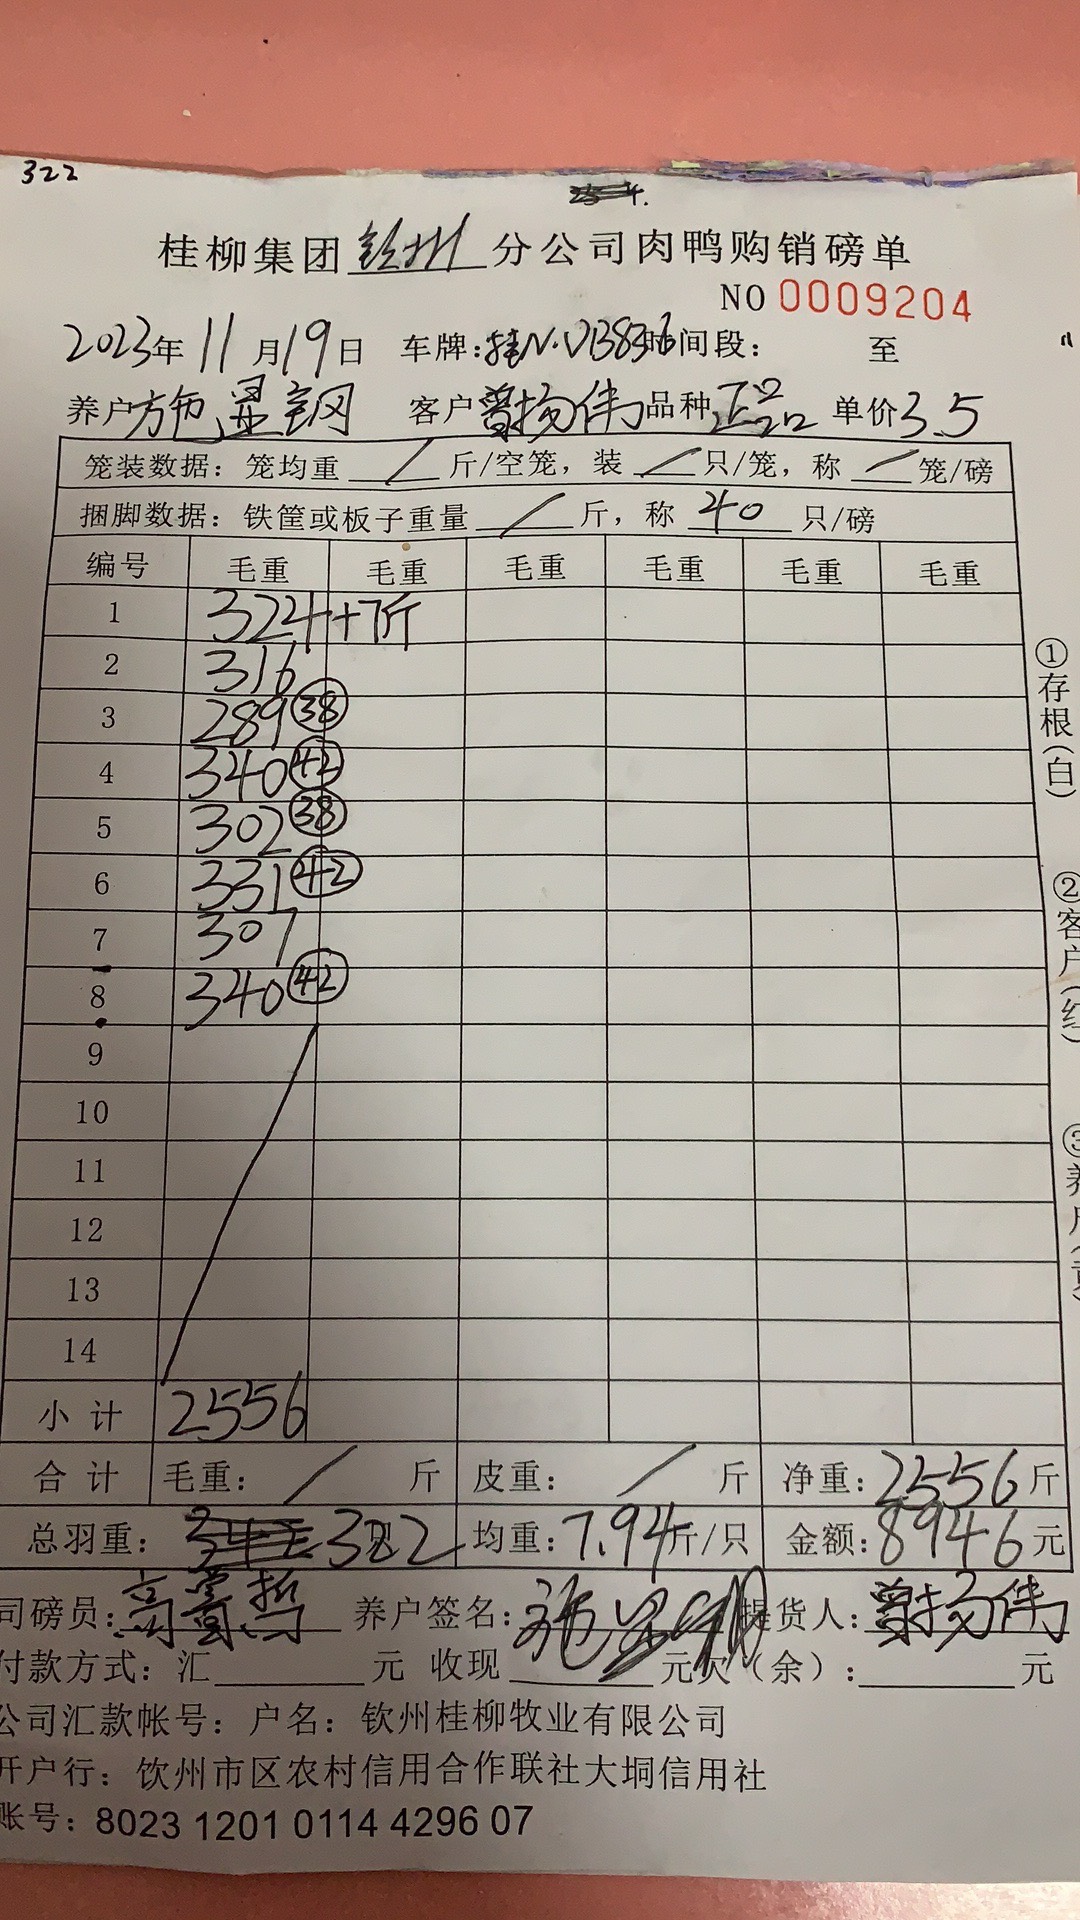 322
桂柳集团 钦州 分公司肉鸭购销磅单
NO 0009204
2023年 11 月 19 日 车牌: 桂N·D1383 时间段: 至
养户 客户 曾扬伟 品种 正品 单价 3.5
笼装数据: 笼均重 / 斤/空笼, 装 / 只/笼, 称 / 笼/磅
捆脚数据: 铁筐或板子重量 / 斤, 称 40 只/磅
编号 毛重 毛重 毛重 毛重 毛重 毛重
1 324+7斤
2 316
3 289 38
4 340 42
5 302 38
6 331 42
7 307
8 340 42
9
10
11
12
13
14
小计 2556
合计 毛重: / 斤 皮重: / 斤 净重: 2556 斤
总羽重: 322 均重: 7.94 斤/只 金额: 8946 元
司磅员: 养户签名: 提货人: 曾扬伟
付款方式: 汇 元 收现 元 欠(余): 元
公司汇款帐号: 户名: 钦州桂柳牧业有限公司
开户行: 钦州市区农村信用合作联社大垌信用社
账号: 8023 1201 0114 4296 07
①存根(白)
②客户(红)
③养户